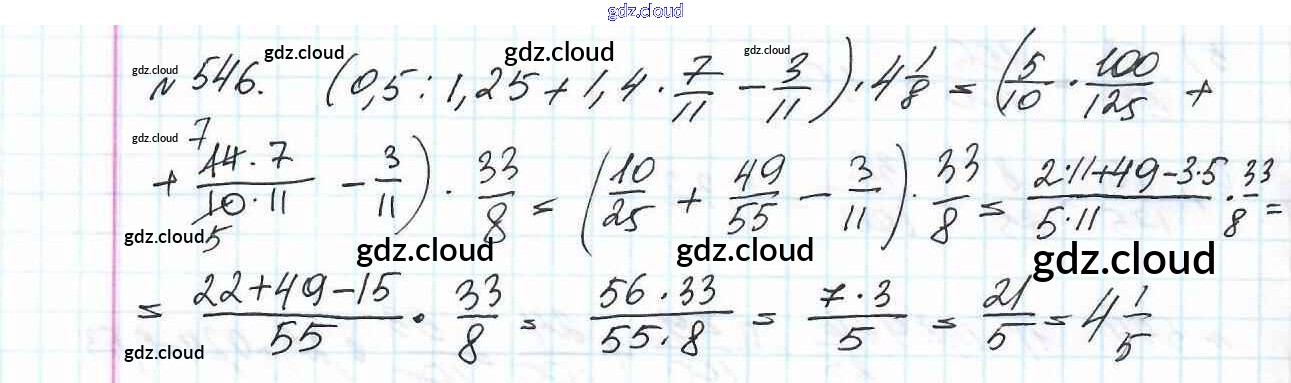 gdz.cloud
gdz.cloud gdz.cloud gdz.cloud gdz.cloud
№ 546. (0,5 : 1,25 + 1,4 · 7/11 − 3/11) · 4 1/8 = (5/10 · 100/125 +
gdz.cloud
+ (14 · 7)/(10 · 11) 7 5 − 3/11) · 33/8 = (10/25 + 49/55 − 3/11) · 33/8 = (2·11+49−3·5)/(5·11) · 33/8 =
gdz.cloud gdz.cloud gdz.cloud gdz.cloud
= (22+49−15)/55 · 33/8 = (56 · 33)/(55 · 8) = (7 · 3)/5 = 21/5 = 4 1/5
gdz.cloud